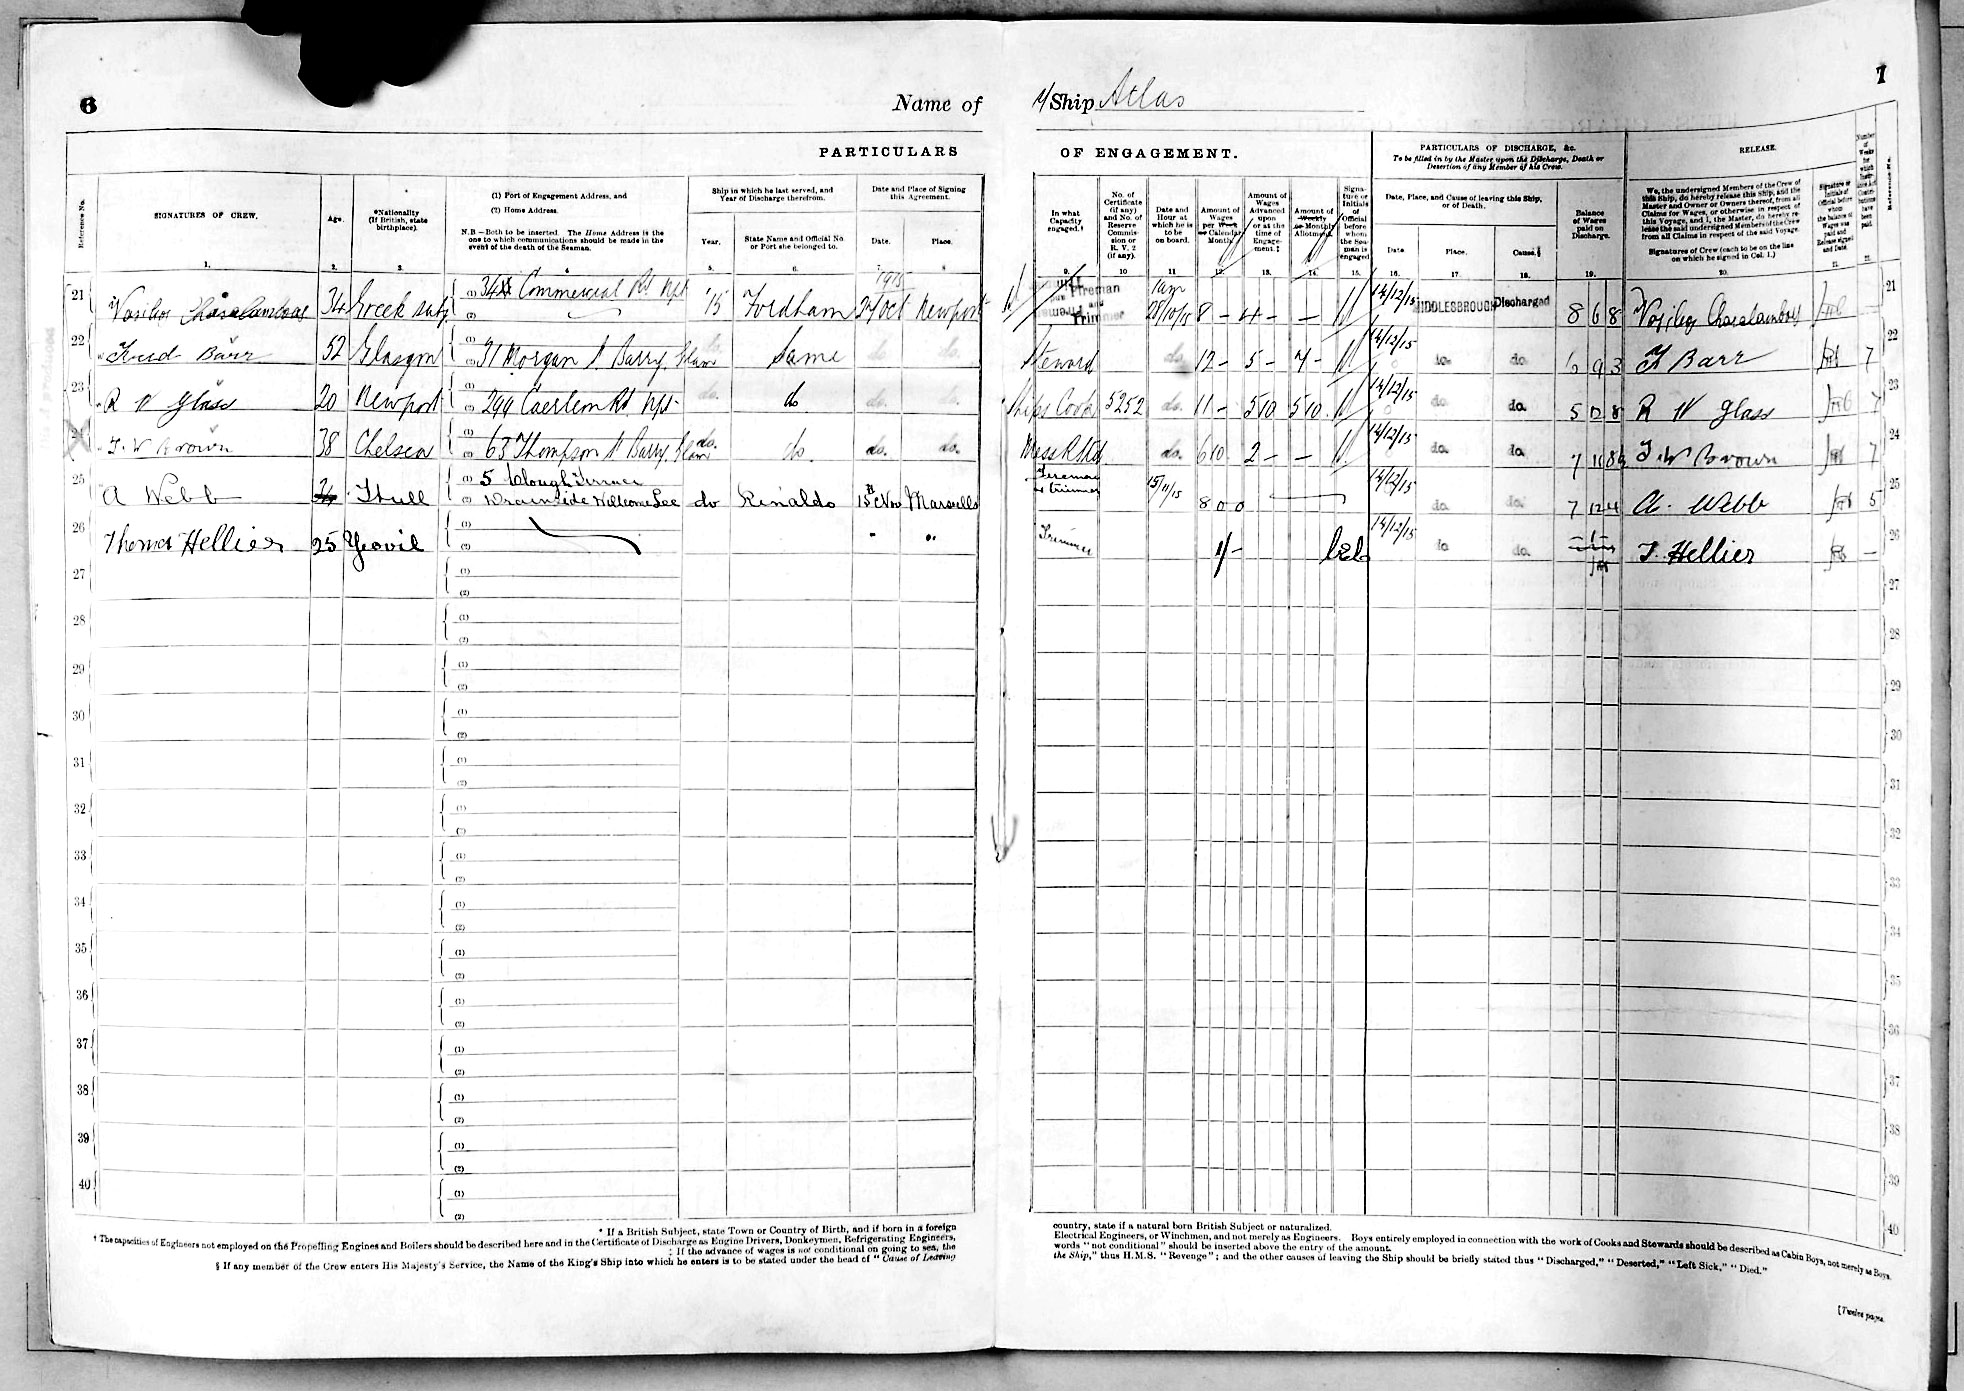 6
Name of
PARTICULARS
Reference No.
SIGNATURES OF CREW.
Age.
*Nationality (If British, state birthplace).
(1) Port of Engagement Address, and
(2) Home Address.
N.B.—Both to be inserted. The Home Address is the one to which communications should be made in the event of the death of the Seaman.
Ship in which he last served, and Year of Discharge therefrom.
Year.
State Name and Official No. or Port she belonged to.
Date and Place of Signing this Agreement.
Date.
Place.
1. 2. 3. 4. 5. 6. 7. 8.
1915
21 Vasilios Charalambous 34 Greek subj (1) Commercial Rd Npt (2) '15 Fordham 27 Oct Newport
22 Fred Barr 52 Glasgow (1) (2) 31 Morgan St Barry, Glam do Same do do.
23 R W Glass 20 Newport (1) (2) 299 Caerleon Rd Npt do. do do. do.
24 T. W Brown 38 Chelsea (1) (2) 63 Thompson St Barry, Glam do. do. do. do.
25 A Webb Hull (1) 5 Clough Terrace (2) Wilcome Lee do Rinaldo 15 Nov Marseille
26 Thomas Hellier 25 Yeovil (1) (2) " "
27 (1) (2)
28 (1) (2)
29 (1) (2)
30 (1) (2)
31 (1) (2)
32 (1) (2)
33 (1) (2)
34 (1) (2)
35 (1) (2)
36 (1) (2)
37 (1) (2)
38 (1) (2)
39 (1) (2)
40 (1) (2)
* If a British Subject, state Town or Country of Birth, and if born in a foreign
† The capacities of Engineers not employed on the Propelling Engines and Boilers should be described here and in the Certificate of Discharge as Engine Drivers, Donkeymen, Refrigerating Engineers,
‡ If the advance of wages is not conditional on going to sea, the
§ If any member of the Crew enters His Majesty's Service, the Name of the King's Ship into which he enters is to be stated under the head of "Cause of Leaving
7
Ship Atlas
OF ENGAGEMENT.
PARTICULARS OF DISCHARGE, &c.
To be filled in by the Master upon the Discharge, Death or Desertion of any Member of his Crew.
RELEASE.
Number of Weeks for which Insurance Act Contributions have been paid.
Reference No.
In what Capacity engaged.†
No. of Certificate (if any) and No. of Reserve Commission or R. V. 2 (if any).
Date and Hour at which he is to be on board.
Amount of Wages per Week or Calendar Month.
Amount of Wages Advanced upon or at the time of Engagement.‡
Amount of Weekly or Monthly Allotment.
Signature or Initials of Official before whom the Seaman is engaged
Date, Place, and Cause of leaving this Ship, or of Death.
Date
Place.
Cause.§
Balance of Wages paid on Discharge.
We, the undersigned Members of the Crew of this Ship, do hereby release this Ship, and the Master and Owner or Owners thereof, from all Claims for Wages, or otherwise in respect of this Voyage, and I, the Master, do hereby release the said undersigned Members of the Crew from all Claims in respect of the said Voyage.
Signatures of Crew (each to be on the line on which he signed in Col. 1.)
Signature or Initials of Official before whom the balance of Wages was paid and Release signed and Date.
9. 10 11 12. 13. 14. 15. 16. 17. 18. 19. 20. 21. 22.
Fireman and Trimmer 1am 28/10/15 8 - 4 - - 14/12/15 MIDDLESBROUGH Discharged 8 6 8 Vasilios Charalambous 21
Steward do. 12 - 5 - 7 - 14/12/15 do. do. 6 9 3 F Barr 7 22
Ships Cook 5252 do. 11 - 5 10 5 10 14/12/15 do. do. 5 12 8 R W Glass 7 23
Mess R Std do. 6 10 2 - - 14/12/15 do. do. 7 11 8 T. W Brown 7 24
Fireman & trimmer 15/11/15 8 0 0 14/12/15 do. do. 7 12 4 A. Webb 5 25
Trimmer 1/- 14/12/15 do do. T. Hellier — 26
27
28
29
30
31
32
33
34
35
36
37
38
39
40
country, state if a natural born British Subject or naturalized.
Electrical Engineers, or Winchmen, and not merely as Engineers. Boys entirely employed in connection with the work of Cooks and Stewards should be described as Cabin Boys, not merely as Boys.
words "not conditional" should be inserted above the entry of the amount.
the Ship," thus H.M.S. "Revenge"; and the other causes of leaving the Ship should be briefly stated thus "Discharged," "Deserted," "Left Sick," "Died."
[Twelve pages.